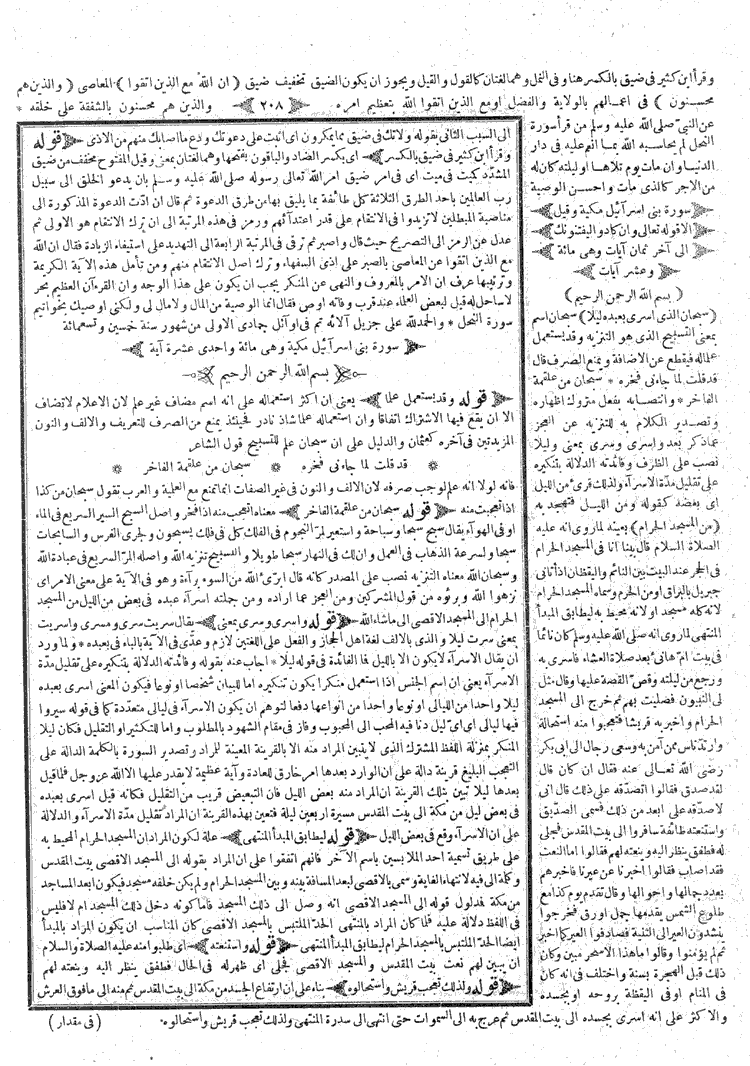 وقرأ ابن كثير فى ضيق بالكسر هنا وفى النمل وهما لغتان كالقول والقيل ويجوز ان يكون الضيق تخفيف ضيق ( ان الله مع الذين اتقوا ) المعاصى ( والذين هم
محسنون ) فى اعمالهم بالولاية والفضل او مع الذين اتقوا الله بتعظيم امره ﴿ ٢٠٨ ﴾ والذين هم محسنون بالشفقة على خلقه *
عن النبى صلى الله عليه وسلم من قرأ سورة
النحل لم يحاسبه الله بما انعم عليه فى دار
الدنيا وان مات يوم تلاها او ليلته كان له
من الاجر كالذى مات واحسن الوصية
﴿ سورة بنى اسرآئيل مكية وقيل ﴾
﴿ الا قوله تعالى وان كادوا ليفتنونك ﴾
﴿ الى آخر ثمان آيات وهى مائة ﴾
﴿ وعشر آيات ﴾
( بسم الله الرحمن الرحيم )
( سبحان الذى اسرى بعبده ليلا ) سبحان اسم
بمعنى التسبيح الذى هو التنزيه وقد يستعمل
علما له فيقطع عن الاضافة ويمنع الصرف قال
قد قلت لما جاءنى فخره * سبحان من علقمة
الفاخر * وانتصابه بفعل متروك اظهاره
وتصدير الكلام به للتنزيه عن العجز
عما ذكر بعد واسرى وسرى بمعنى وليلا
نصب على الظرف وفائدته الدلالة بتنكيره
على تقليل مدة الاسرآء ولذلك قرئ من الليل
اى بعضه كقوله ومن الليل فتهجد به
( من المسجد الحرام ) بعينه لما روى انه عليه
الصلاة السلام قال بينا انا فى المسجد الحرام
فى الحجر عند البيت بين النائم واليقظان اذ اتانى
جبريل بالبراق او من الحرم وسماه المسجد الحرام
لانه كله مسجد او لانه محيط به ليطابق المبدأ
المنتهى لما روى انه صلى الله عليه وسلم كان نائما
فى بيت ام هانئ بعد صلاة العشاء فاسرى به
ورجع من ليلته وقص القصة عليها وقال مثل
لى النبيون فصليت بهم ثم خرج الى المسجد
الحرام واخبر به قريشا فتعجبوا منه استحالة
وارتد ناس ممن آمن به وسعى رجال الى ابى بكر
رضى الله تعالى عنه فقال ان كان قال
لقد صدق فقالوا اتصدقه على ذلك قال انى
لاصدقه على ابعد من ذلك فسمى الصديق
واستنعته طائفة سافروا الى بيت المقدس فجلى
له فطفق ينظر اليه وينعته لهم فقالوا اما النعت
فقد اصاب فقالوا اخبرنا عن عيرنا فاخبرهم
بعدد جمالها واحوالها وقال تقدم يوم كذا مع
طلوع الشمس يقدمها جمل اورق فخرجوا
ينشدون العير الى الثنية فصادفوا العير كما اخبر
ثم لم يؤمنوا وقالوا ما هذا الا سحر مبين وكان
ذلك قبل الهجرة بسنة واختلف فى انه كان
فى المنام او فى اليقظة بروحه او بجسده
والاكثر على انه اسرى بجسده الى بيت المقدس ثم عرج به الى السموات حتى انتهى الى سدرة المنتهى ولذلك تعجب قريش واستحالوه *
الى السبب الثانى بقوله ولاتك فى ضيق مما يمكرون اى اثبت على دعوتك ودع ما اصابك منهم من الاذى ﴿ قوله
وقرأ ابن كثير فى ضيق بالكسر ﴾ اى بكسر الضاد والباقون بفتحها وهما لغتان بمعنى وقيل المفتوح مخفف من ضيق
المشدد كميت فى ميت اى فى امر ضيق امر الله تعالى رسوله صلى الله عليه وسلم بان يدعو الخلق الى سبيل
رب العالمين باحد الطرق الثلاثة كل طائفة بما يليق بها من طرق الدعوة ثم قال ان ادت الدعوة المذكورة الى
مناصبة المبطلين لا تزيدوا فى الانتقام على قدر اعتدآئهم ورمز فى هذه المرتبة الى ان ترك الانتقام هو الاولى ثم
عدل عن الرمز الى التصريح حيث قال واصبر ثم ترقى فى المرتبة الرابعة الى التهديد على استيفاء الزيادة فقال ان الله
مع الذين اتقوا عن المعاصى بالصبر على اذى السفهاء وترك اصل الانتقام منهم ومن تأمل هذه الآية الكريمة
وترتيبها عرف ان الامر بالمعروف والنهى عن المنكر يجب ان يكون على هذا الوجه وان القرءآن العظيم بحر
لا ساحل له قيل لبعض العلماء عند قرب وفاته اوص فقال انما الوصية من المال ولا مال لى ولكنى اوصيك بخواتيم
سورة النحل * والحمد لله على جزيل آلائه تم فى اوآئل جمادى الاولى من شهور سنة خمسين وتسعمائة
﴿ سورة بنى اسرآئيل مكية وهى مائة واحدى عشرة آية ﴾
﴿ بسم الله الرحمن الرحيم ﴾
﴿ قوله وقد يستعمل علما ﴾ يعنى ان اكثر استعماله على انه اسم مضاف غير علم لان الاعلام لا تضاف
الا ان يقع فيها الاشتراك اتفاقا وان استعماله علما شاذ نادر فحينئذ يمنع من الصرف للتعريف والالف والنون
المزيدتين فى آخره كعثمان والدليل على ان سبحان علم للتسبيح قول الشاعر
* قد قلت لما جاءنى فخره * سبحان من علقمة الفاخر *
فانه لولا انه علم لوجب صرفه لان الالف والنون فى غير الصفات انما تمنع مع العلمية والعرب تقول سبحان من كذا
اذا تعجبت منه ﴿ قوله سبحان من علقمة الفاخر ﴾ معناه اتعجب منه اذا فخر واصل السبح السير السريع فى الماء
او فى الهوآء يقال سبح سبحا وسباحة واستعير لمر النجوم فى الفلك كل فى فلك يسبحون ولجرى الفرس والسابحات
سبحا ولسرعة الذهاب فى العمل وان لك فى النهار سبحا طويلا والتسبيح تنزيه الله واصله المر السريع فى عبادة الله
وسبحان الله معناه التنزيه نصب على المصدر كانه قال ابرئ الله من السوء برآءة وهو فى الآية على معنى الامر اى
نزهوا الله وبرئوه من قول المشركين ومن العجز عما اراده ومن جملته اسرآء عبده فى بعض من الليل من المسجد
الحرام الى المسجد الاقصى الى ما شاء الله ﴿ قوله واسرى وسرى بمعنى ﴾ يقال سريت سرى ومسرى واسريت
بمعنى سرت ليلا والذى بالالف لغة اهل الحجاز والفعل على اللغتين لازم وعدى فى الآية بالباء فى بعبده * ولما ورد
ان يقال الاسرآء لا يكون الا بالليل فما الفائدة فى قوله ليلا * اجاب عنه بقوله وفائدته الدلالة بتنكيره على تقليل مدة
الاسرآء يعنى ان اسم الجنس اذا استعمل منكرا يكون تنكيره اما للبيان شخصا او نوعا فيكون المعنى اسرى بعبده
ليلا واحدا من الليالى او نوعا واحدا من انواعها دفعا لتوهم ان يكون الاسرآء فى ليالى متعددة كما فى قوله سيروا
فيها ليالى اى اى ليل دنا فيه المحب الى المحبوب وفاز فى مقام الشهود بالمطلوب واما للتكثير او التقليل فكان ليلا
المنكر بمنزلة اللفظ المشترك الذى لا يتبين المراد منه الا بالقرينة المعينة للمراد وتصدير السورة بالكلمة الدالة على
التعجب البليغ قرينة دالة على ان الوارد بعدها امر خارق للعادة وآية عظيمة لا يقدر عليها الا الله عز وجل فلما قيل
بعدها ليلا تبين بتلك القرينة ان المراد منه بعض الليل فان التبعيض قريب من التقليل فكانه قيل اسرى بعبده
فى بعض ليل من مكة الى بيت المقدس مسيرة اربعين ليلة فتعين بهذه القرينة ان المراد تقليل مدة الاسرآء والدلالة
على ان الاسرآء وقع فى بعض الليل ﴿ قوله ليطابق المبدأ المنتهى ﴾ علة لكون المراد ان المسجد الحرام المحيط به
على طريق تسمية احد الملابسين باسم الآخر فانهم اتفقوا على ان المراد بقوله الى المسجد الاقصى بيت المقدس
وكلمة الى فيه لانتهاء الغاية وسمى بالاقصى لبعد المسافة بينه وبين المسجد الحرام ولم يكن خلفه مسجد فيكون ابعد المساجد
من مكة فدلول قوله الى المسجد الاقصى انه وصل الى ذلك المسجد فاما كونه دخل ذلك المسجد ام لا فليس
فى اللفظ دلالة عليه فلما كان المراد بالمنتهى الحد الملتبس بالمسجد الاقصى كان المناسب ان يكون المراد بالمبدأ
ايضا الحد الملتبس بالمسجد الحرام ليطابق المبدأ المنتهى ﴿ قوله واستنعته ﴾ اى طلبوا منه عليه الصلاة والسلام
ان يبين لهم نعت بيت المقدس والمسجد الاقصى فجلى اى ظهر له فى الحال فطفق ينظر اليه وينعته لهم
﴿ قوله ولذلك تعجب قريش واستحالوه ﴾ بناء على ان ارتفاع الجسد من مكة الى بيت المقدس ثم منه الى ما فوق العرش
( فى مقدار )